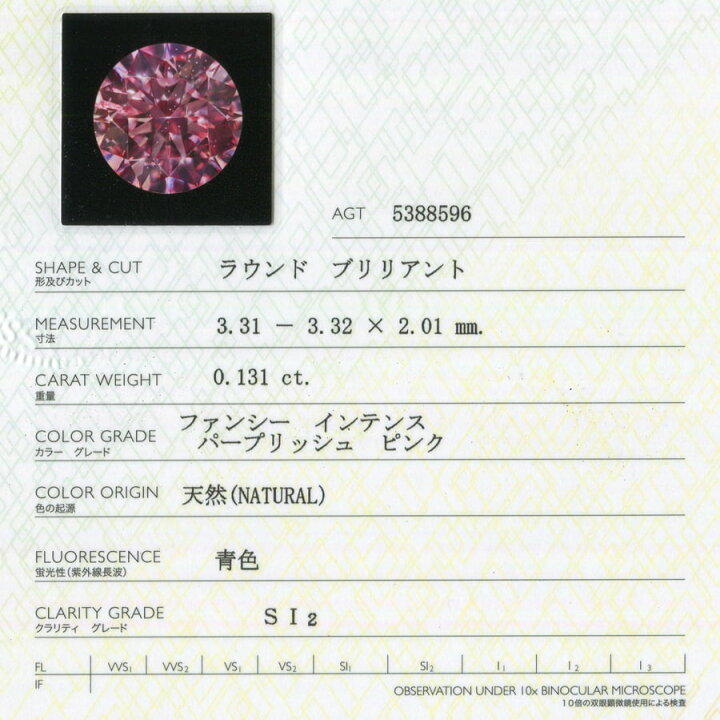 AGT 5388596
SHAPE & CUT ラウンド ブリリアント
形及びカット
MEASUREMENT 3.31 － 3.32 × 2.01 mm.
寸法
CARAT WEIGHT 0.131 ct.
重量
ファンシー インテンス
COLOR GRADE パープリッシュ ピンク
カラー グレード
COLOR ORIGIN 天然(NATURAL)
色の起源
FLUORESCENCE 青色
蛍光性(紫外線長波)
CLARITY GRADE ＳＩ₂
クラリティ グレード
FL VVS₁ VVS₂ VS₁ VS₂ SI₁ SI₂ I₁ I₂ I₃
IF
OBSERVATION UNDER 10x BINOCULAR MICROSCOPE
10倍の双眼顕微鏡使用による検査